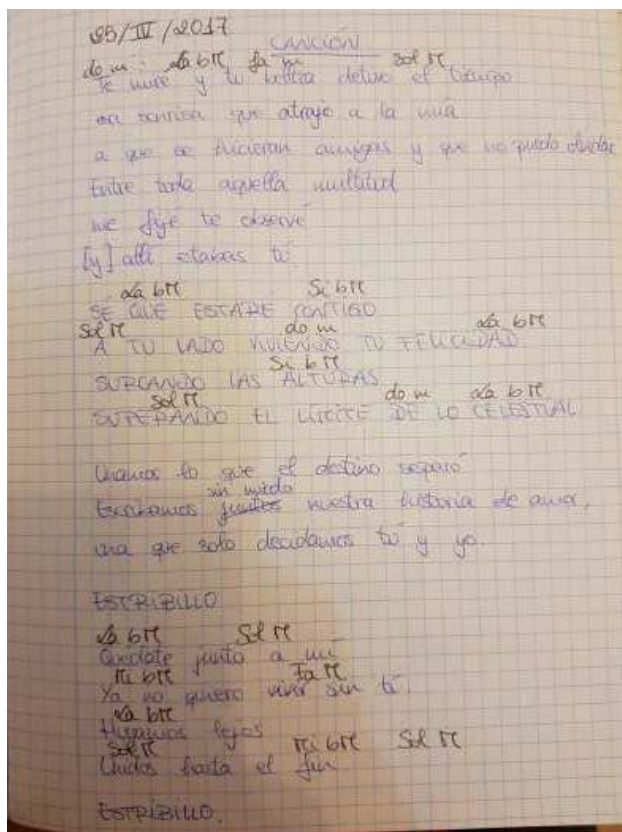 25/IV/2017
CANCIÓN
do m. La bM fa m sol M
Te miré y tu belleza detuvo el tiempo
esa sonrisa que atrajo a la mía
a que se hicieran amigas y que no puedo olvidar
Entre toda aquella multitud
me fijé te observé
[y] allí estabas tú.
La bM Si bM
SE QUE ESTARÉ CONTIGO
Sol M do m La bM
A TU LADO VIVIENDO TU FELICIDAD
Si bM
SURCANDO LAS ALTURAS
Sol M do m La bM
SUPERANDO EL LÍMITE DE LO CELESTIAL
Unamos lo que el destino separó
sin miedo
Escribamos juntos nuestra historia de amor,
una que solo decidamos tú y yo.
ESTRIBILLO
La bM Sol M
Quédate junto a mí
Mi bM Fa M
Ya no quiero vivir sin ti.
La bM
Huyamos lejos
Sol M Mi bM Sol M
Unidos hasta el fin
ESTRIBILLO.